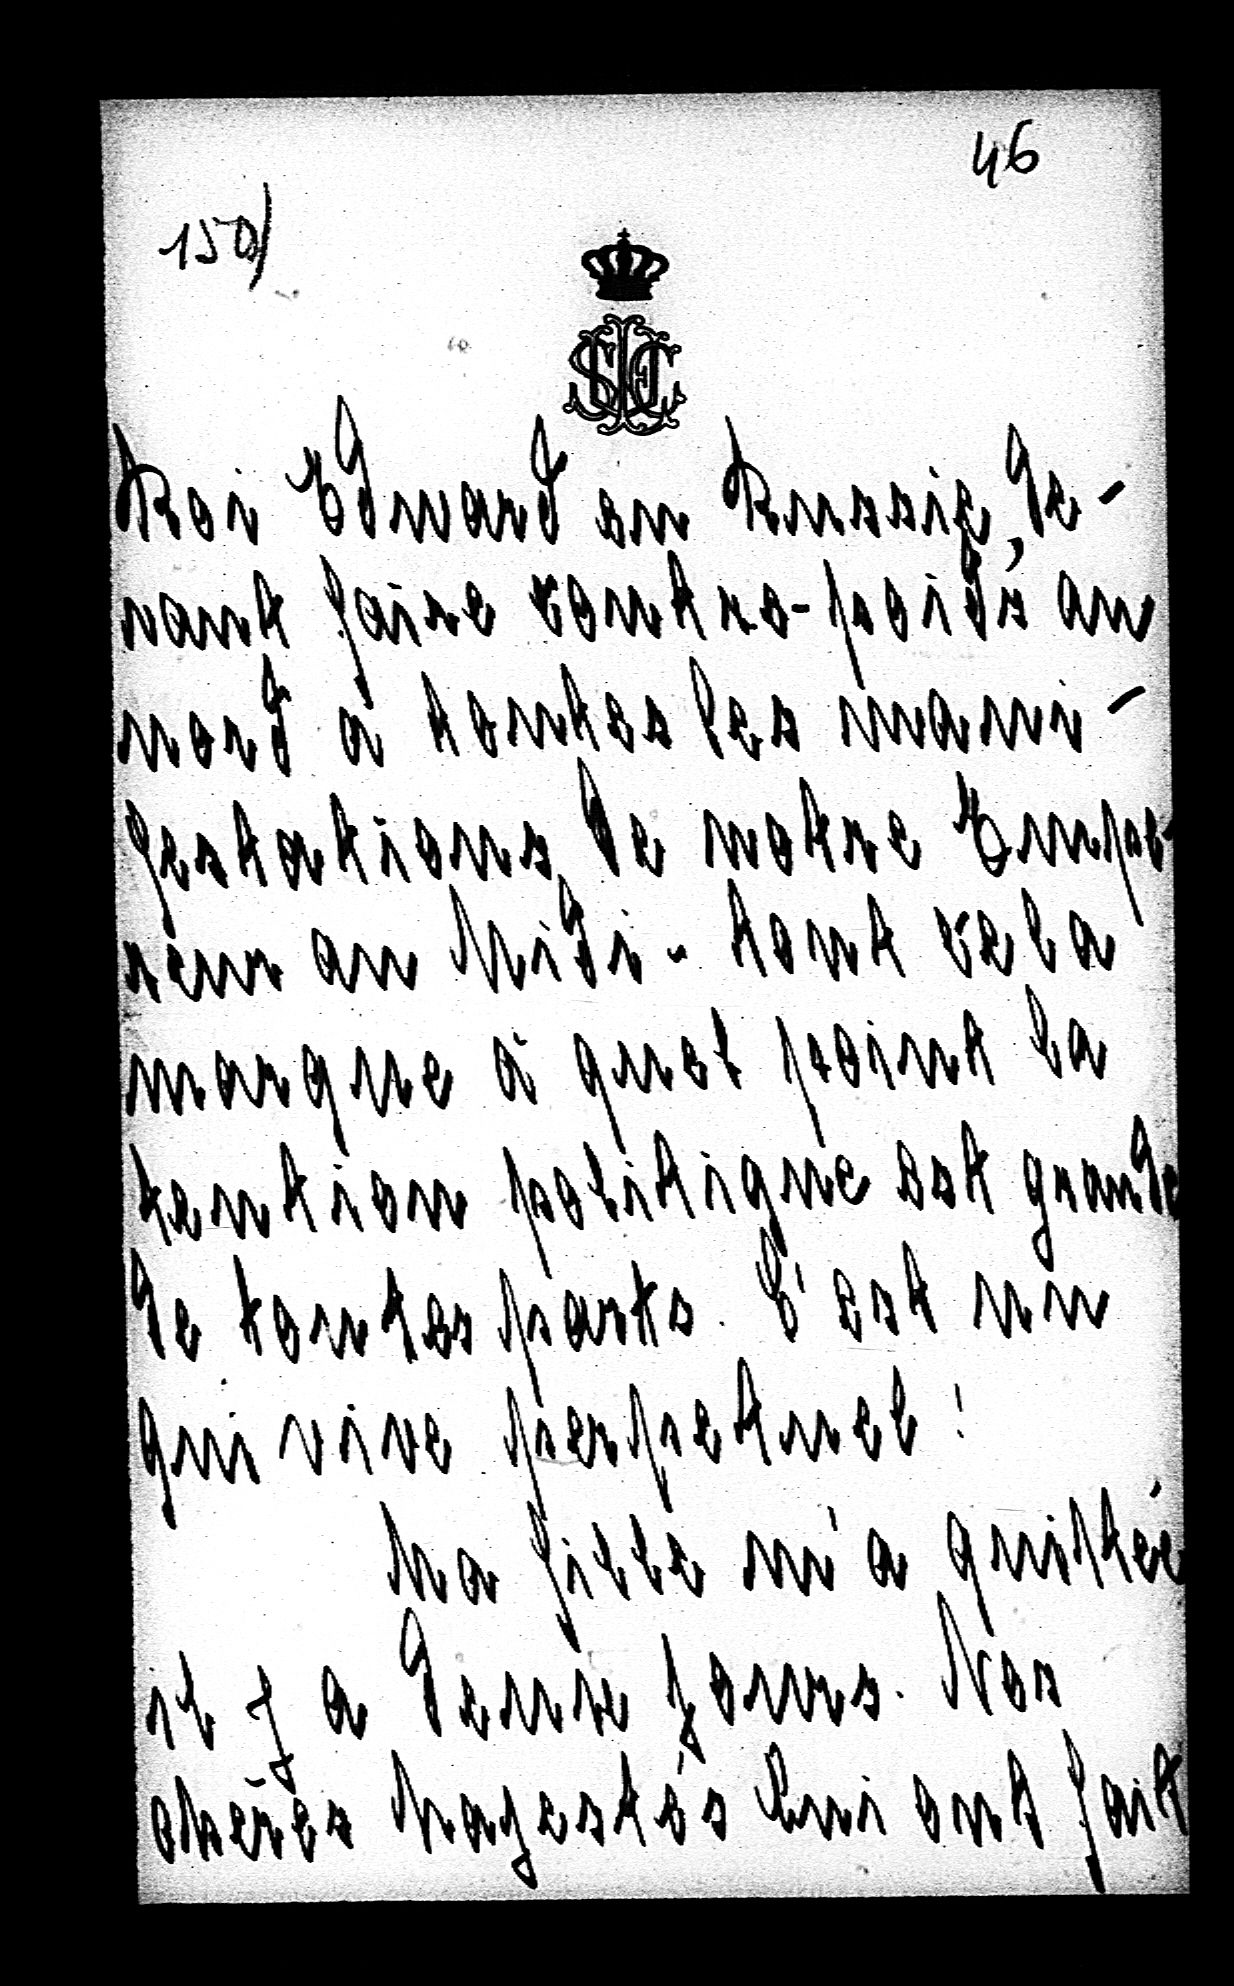 46
150)
Roi Edward en Russie, de-
vant faire contre-poids au
nord à toutes les mani-
festations de notre Empe-
reur au Midi - tout cela
marque à quel point la
tention politique est grande
de toutes parts. C'est un
qui vive perpetuel!
Ma fille m'a quittée
il y a deux jours. Nos
chères Majestés lui ont fait